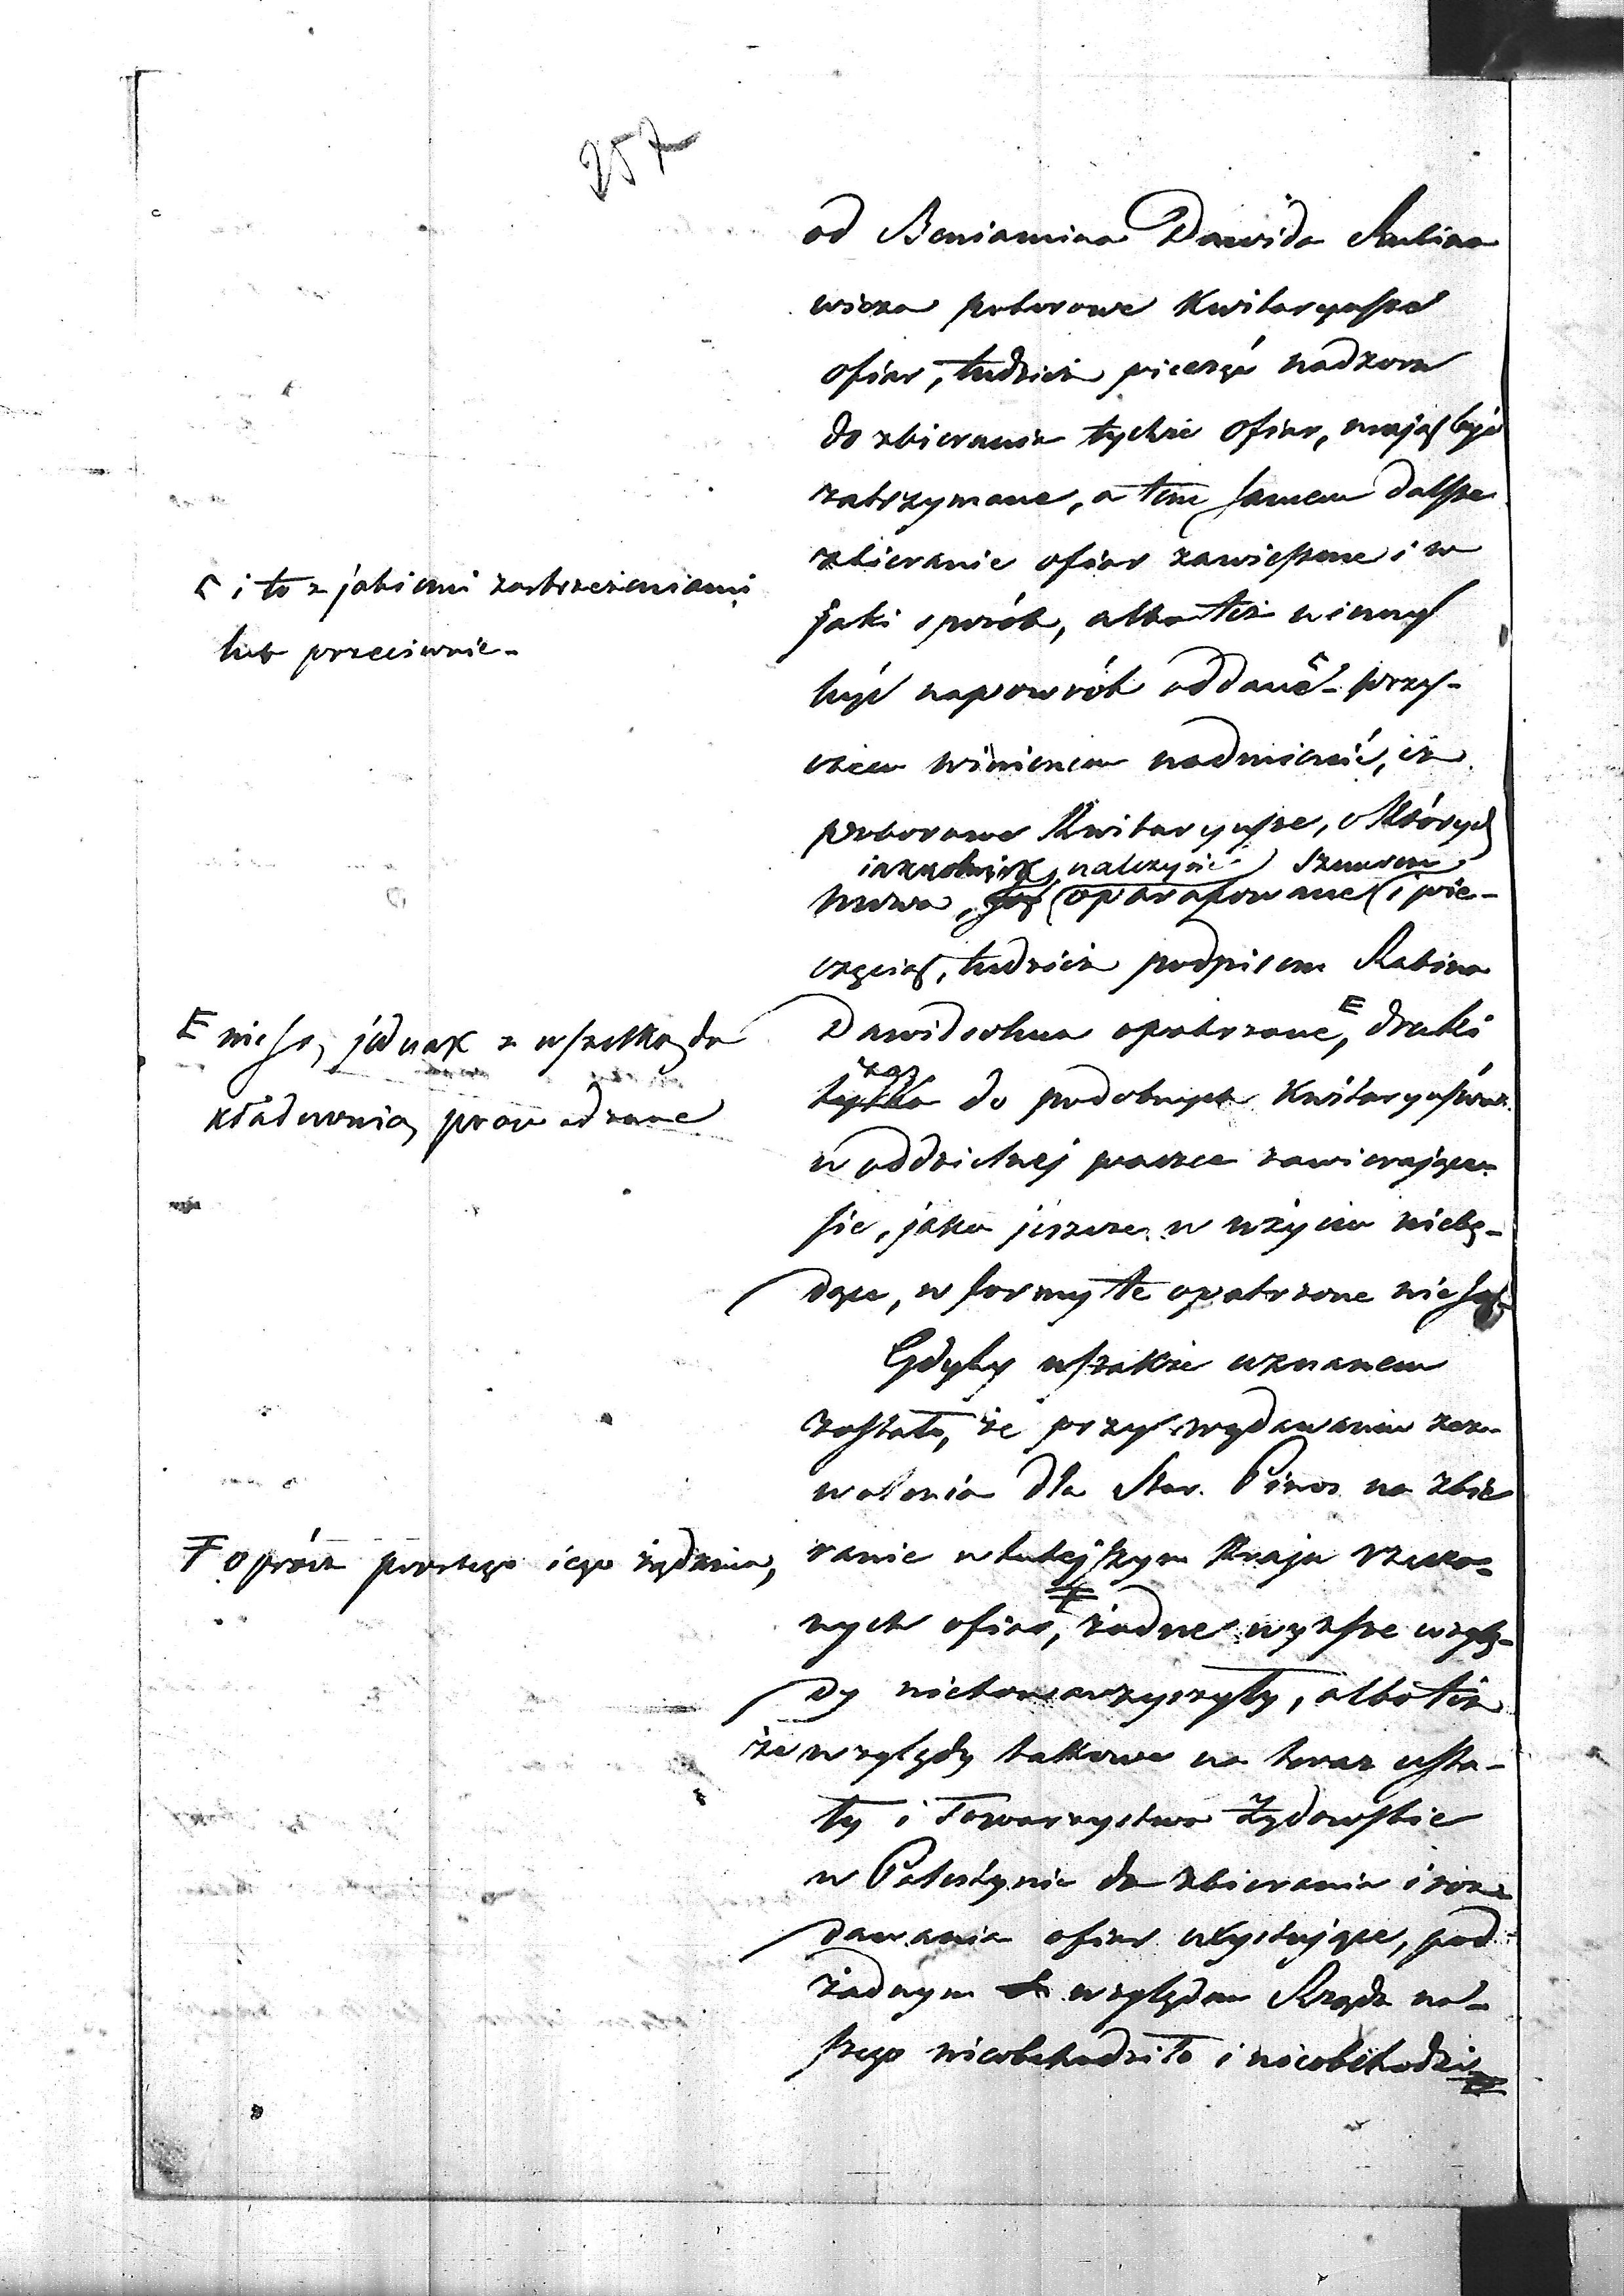 257
od Beniamina Dawida Rabino
wicza poborowe Kwitaryusze
ofiar, tudzież pieczęć nadzoru
do zbierania tychże ofiar, mają być
zatrzymane, a tem samem dalsze
zbieranie ofiar zawieszone i w
jaki sposób, albo też winny
być napowrót oddane - przy-
czem winienem nadmienić, iż
poborowe Kwitaryusze, o których
należycie sznurem
mowa, są oparafowane i pie-
częcią, tudzież podpisem Rabina
Dawidsohna opatrzone, E druki
zaś
tylko do podobnych Kwitaryuszów
w oddzielnej paczce zawierające
się, jako jeszcze w użyciu niebę-
dące, w formy te opatrzone nie są
Gdyby wszakże uznanem
zostało, że przy wydawaniu zez-
wolenia dla Star. Pinos na zbie
ranie w tutejszym Kraju rzeczo-
nych ofiar, F żadne wyższe wzglę-
dy nietowarzyszyły, albo też
że względy takowe na teraz usta-
ły i Towarzystwo Żydowskie
w Palestynie do zbierania i roz
dawania ofiar istniejące, pod
żadnym względem Rządu na-
szego nieobchodziło i nieobchodzi
i to z jakiemi zastrzeżeniami
lub przeciwnie -
E nie są jednak z wszelką do
kładnością prowadzone
F oprócz prostego jego żądania,